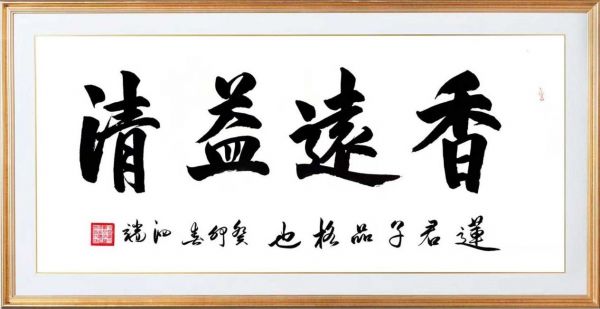 香遠益清
蓮君子品格也 癸卯春 泗